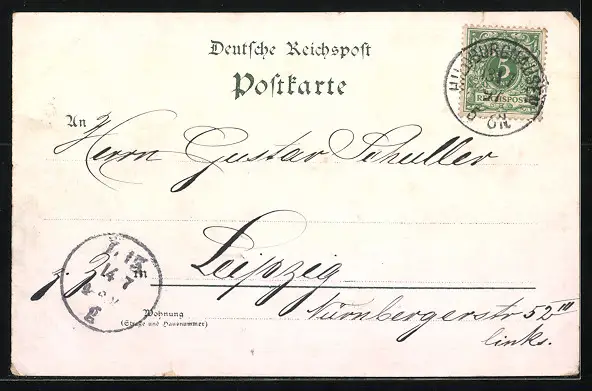 Deutsche Reichspost
Postkarte
HILDBURGHAUSEN
5
REICHSPOST
An
Herrn Gustav Schuller
z. Z. in Leipzig
14 7
Wohnung
(Straße und Hausnummer)
Nürnbergerstr 52 III
links.